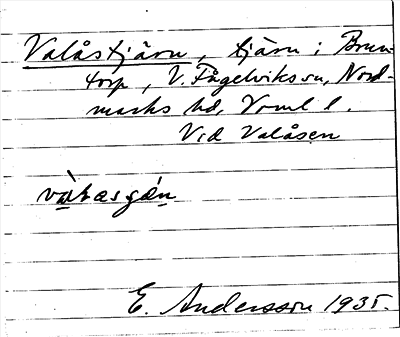 Valåstjärn, tjärn i Brun-
torp, V. Fågelviks sn, Nord-
marks hd, Vrml l.
Vid Valåsen
E. Andersson 1935.